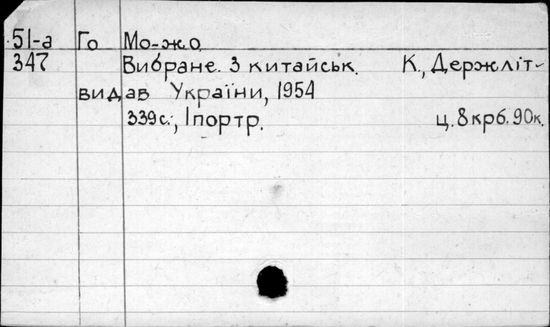 51-а Го Мо-жо
347 Вибране. З китайськ. К., Держліт-
видав України, 1954
339с., 1портр. ц. 8крб. 90к.